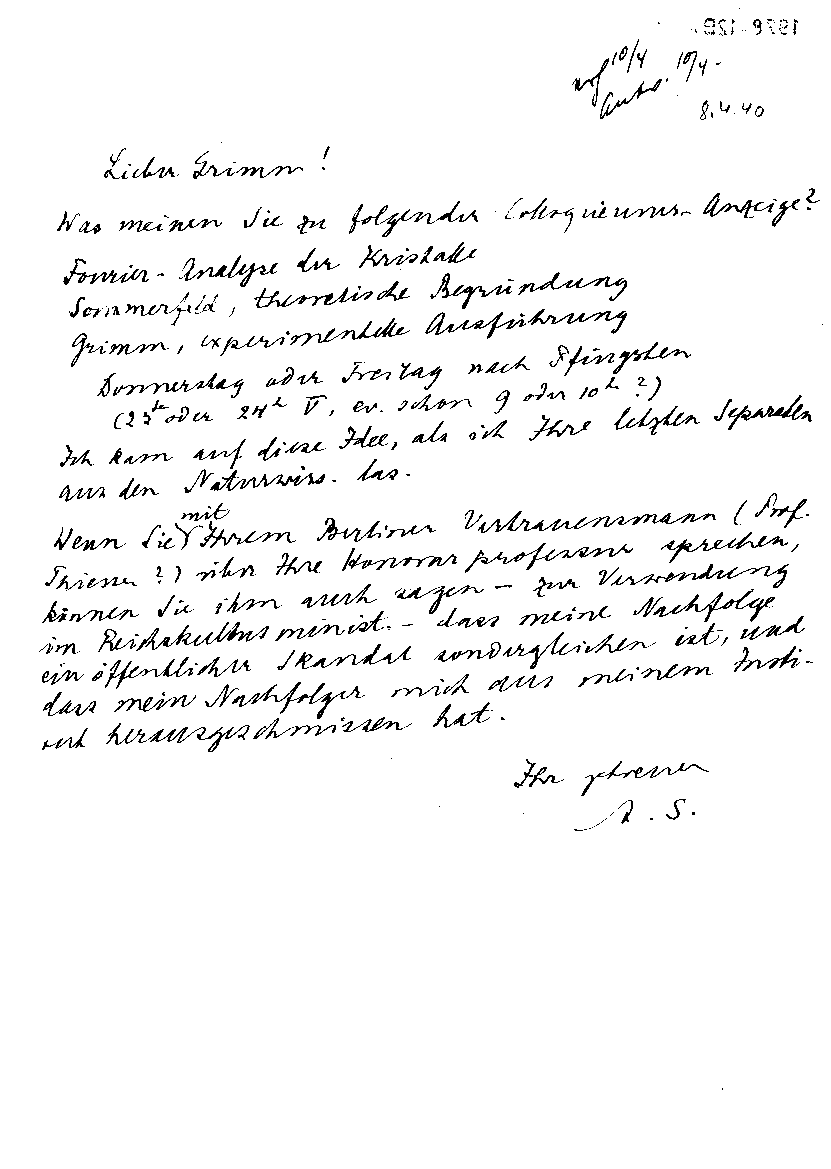 1978-12B
10/4
Antw. 10/4.
8.4.40
Lieber Grimm!
Was meinen Sie zu folgender Colloquiums-Anzeige?
Fourier-Analyse der Kristalle
Sommerfeld, theoretische Begründung
Grimm, experimentelle Ausführung
Donnerstag oder Freitag nach Pfingsten
(23ten oder 24ten V, ev. schon 9 oder 10h?)
Ich kam auf diese Idee, als ich Ihre letzten Separaten
aus den Naturwiss. las.
mit
Wenn Sie Ihrem Berliner Vertrauensmann (Prof.
Thiessen?) über Ihre Honorarprofessur sprechen,
können Sie ihm auch sagen – zur Verwendung
im Reichskultusminist. – dass meine Nachfolge
ein öffentlicher Skandal sondergleichen ist, und
dass mein Nachfolger mich aus meinem Insti-
tut herausgeschmissen hat.
Ihr getreuer
A. S.